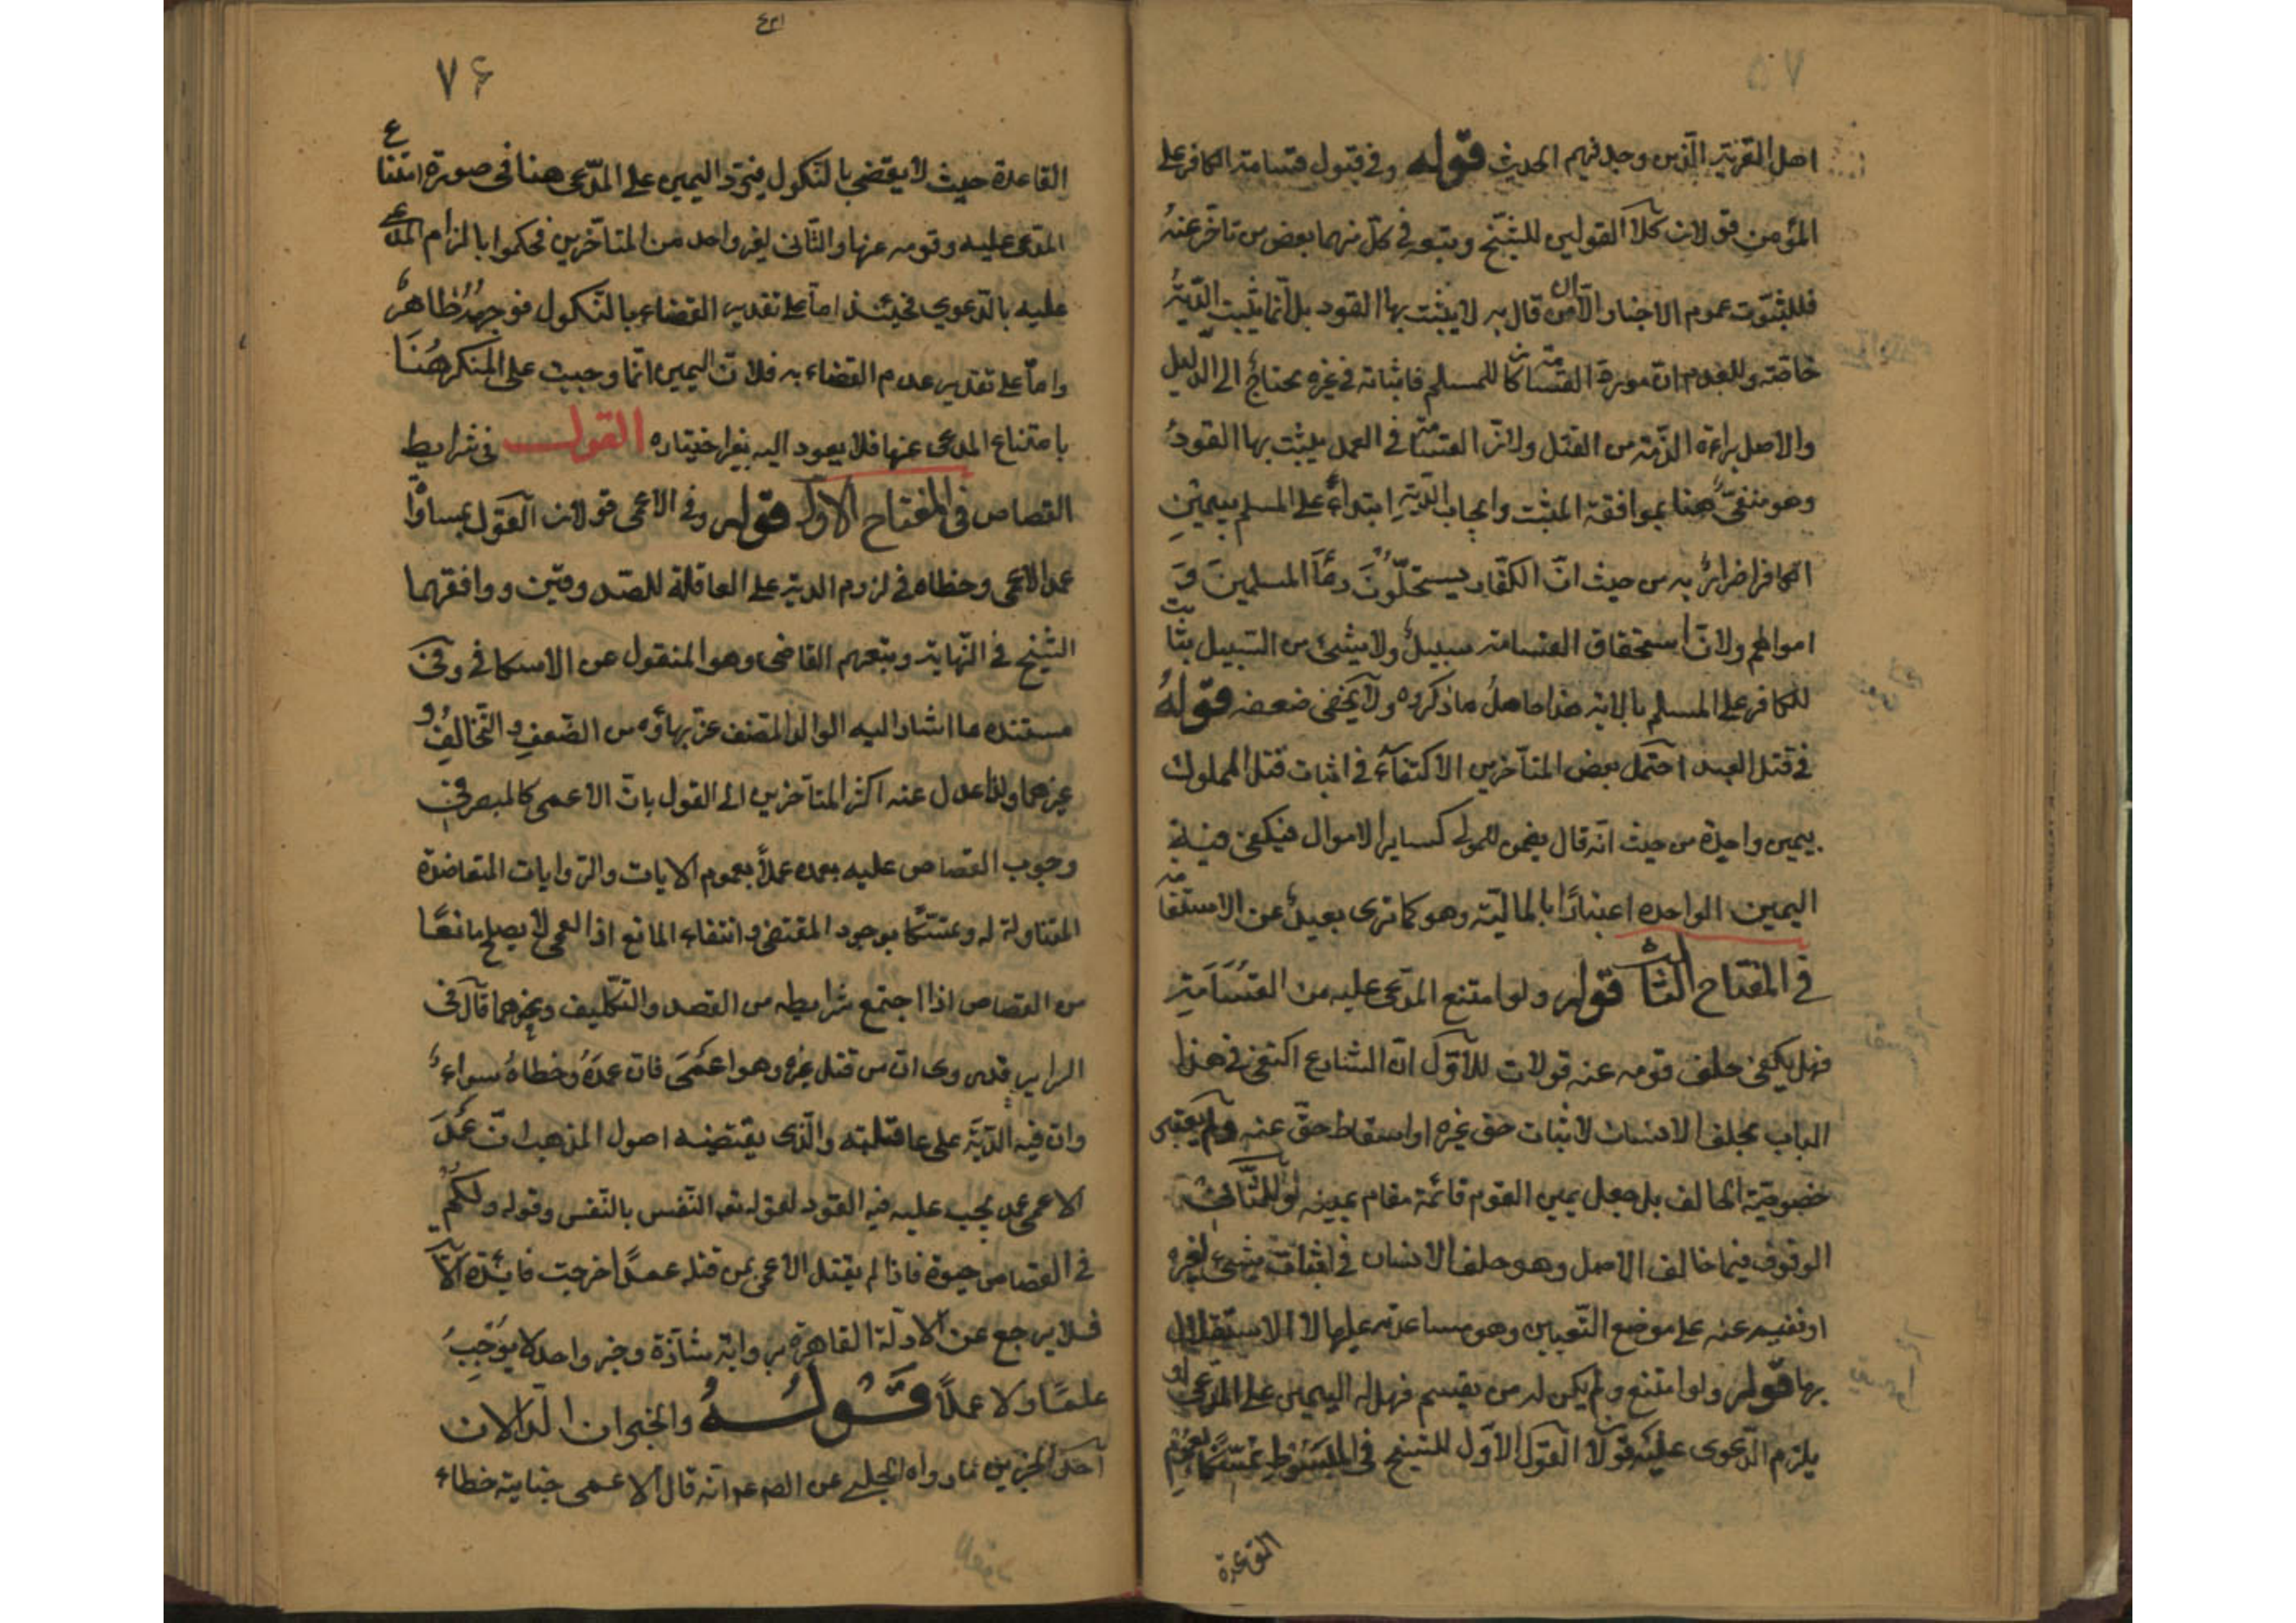 اهل القرية الذين وجد فيهم الحديث قوله وفي قبول قسامة الكافر على
المؤمن قولان كلا القولين للشيخ وتبعه في كل منهما بعض من تأخر عنه
فللثبوت عموم الاخبار الا ان من قال به لا يثبت بها القود بل انما يثبت الدية
خاصة وللعدم ان مورد القسامة كان للمسلم فاثباته في غيره محتاج الى الدليل
والاصل براءة الذمة من القتل ولان القسامة في العمد يثبت بها القود
وهو منفي هنا بموافقة المثبت وايجاب الدية ابتداء على المسلم بيمين
الكافر اضرار به من حيث ان الكفار يستحلون دماء المسلمين و
اموالهم ولان استحقاق القسامة سبيل ولا شيئ من السبيل بثابت
للكافر على المسلم بالاية هذا حاصل ما ذكروه ولا يخفى ضعفه قوله
في قتل العبد احتمل بعض المتأخرين الاكتفاء في اثبات قتل المملوك
بيمين واحدة من حيث انه قال يضمن للمولى كساير الاموال فيكفى فيه
اليمين الواحده اعتبارا بالمالية وهو كما ترى بعيد عن الاستقامة
في المفتاح الثالث قوله ولو امتنع المدعى عليه من القسامة
فهل يكفى حلف قومه عنه قولان للاول ان الشارع اكتفى في هذا
الباب بحلف الانسان لاثبات حق غيره او اسقاط حق عنه ولم يعتبر
خصوصية الحالف بل جعل يمين القوم قائمة مقام يمينه وللثاني
الوقوف فيما خالف الاصل وهو حلف الانسان في اثبات شيئ لغيره
او نفيه عنه على موضع اليقين وهو مساعدته عليها لا الاستقلال
بها قوله ولو امتنع ولم يكن له من يقسم فهل له اليمين على المدعى او
يلزم الدعوى عليه قولان القول الاول للشيخ في المبسوط تمسكا بعموم
القاعدة
٤٢١
٧۶
القاعدة حيث لا يقضي بالنكول فيرد اليمين على المدعي هنا في صورة امتناع
المدعى عليه وقومه عنها والثاني لغير واحد من المتأخرين فحكموا بالزام المدعى
عليه بالدعوي فحينئذ اما على تقدير القضاء بالنكول فوجهه ظاهر
واما على تقدير عدم القضاء به فلان اليمين انما وجبت على المنكر هنا
بامتناع المدعي عنها فلا يعود اليه بغير اختياره القول في شرايط
القصاص في المفتاح الاول قوله وفي الاعمى قولان القول بمساواة
عمد الاعمى وخطاه في لزوم الدية على العاقلة للصدوقين ووافقهما
الشيخ في النهاية وتبعهم القاضي وهو المنقول عن الاسكافي وفي
مستنده ما اشار اليه الوالد المصنف عز بهاؤه من الضعف والتخالف و
غيرهما ولذا عدل عنه اكثر المتأخرين الى القول بان الاعمى كالمبصر في
وجوب القصاص عليه بعمده عملا بعموم الايات والروايات المتعاضدة
المتناولة له وتمسكا بوجود المقتضى وانتفاء المانع اذ العمى لا يصلح مانعا
من القصاص اذا اجتمع شرايطه من القصد والتكليف وغيرهما قال في
السراير قد روى ان من قتل غيره وهو اعمى فان عمده وخطاه سواء
وان فيه الدية على عاقلته والذى يقتضيه اصول المذهب ان عمد
الاعمى عمد يجب عليه فيه القود لقوله تعه النفس بالنفس وقوله ولكم
في القصاص حيوة فاذا لم يقتل الاعمى بمن قتله عمدا خرجت فائدة الآية
فلا يرجع عن الادلة القاهرة برواية شاذة وخبر واحد لا يوجب
علما ولا عملا قوله والخبران الدالان
احد الخبرين ما رواه الحلبي عن الصم عم انه قال الاعمى جنايته خطاء